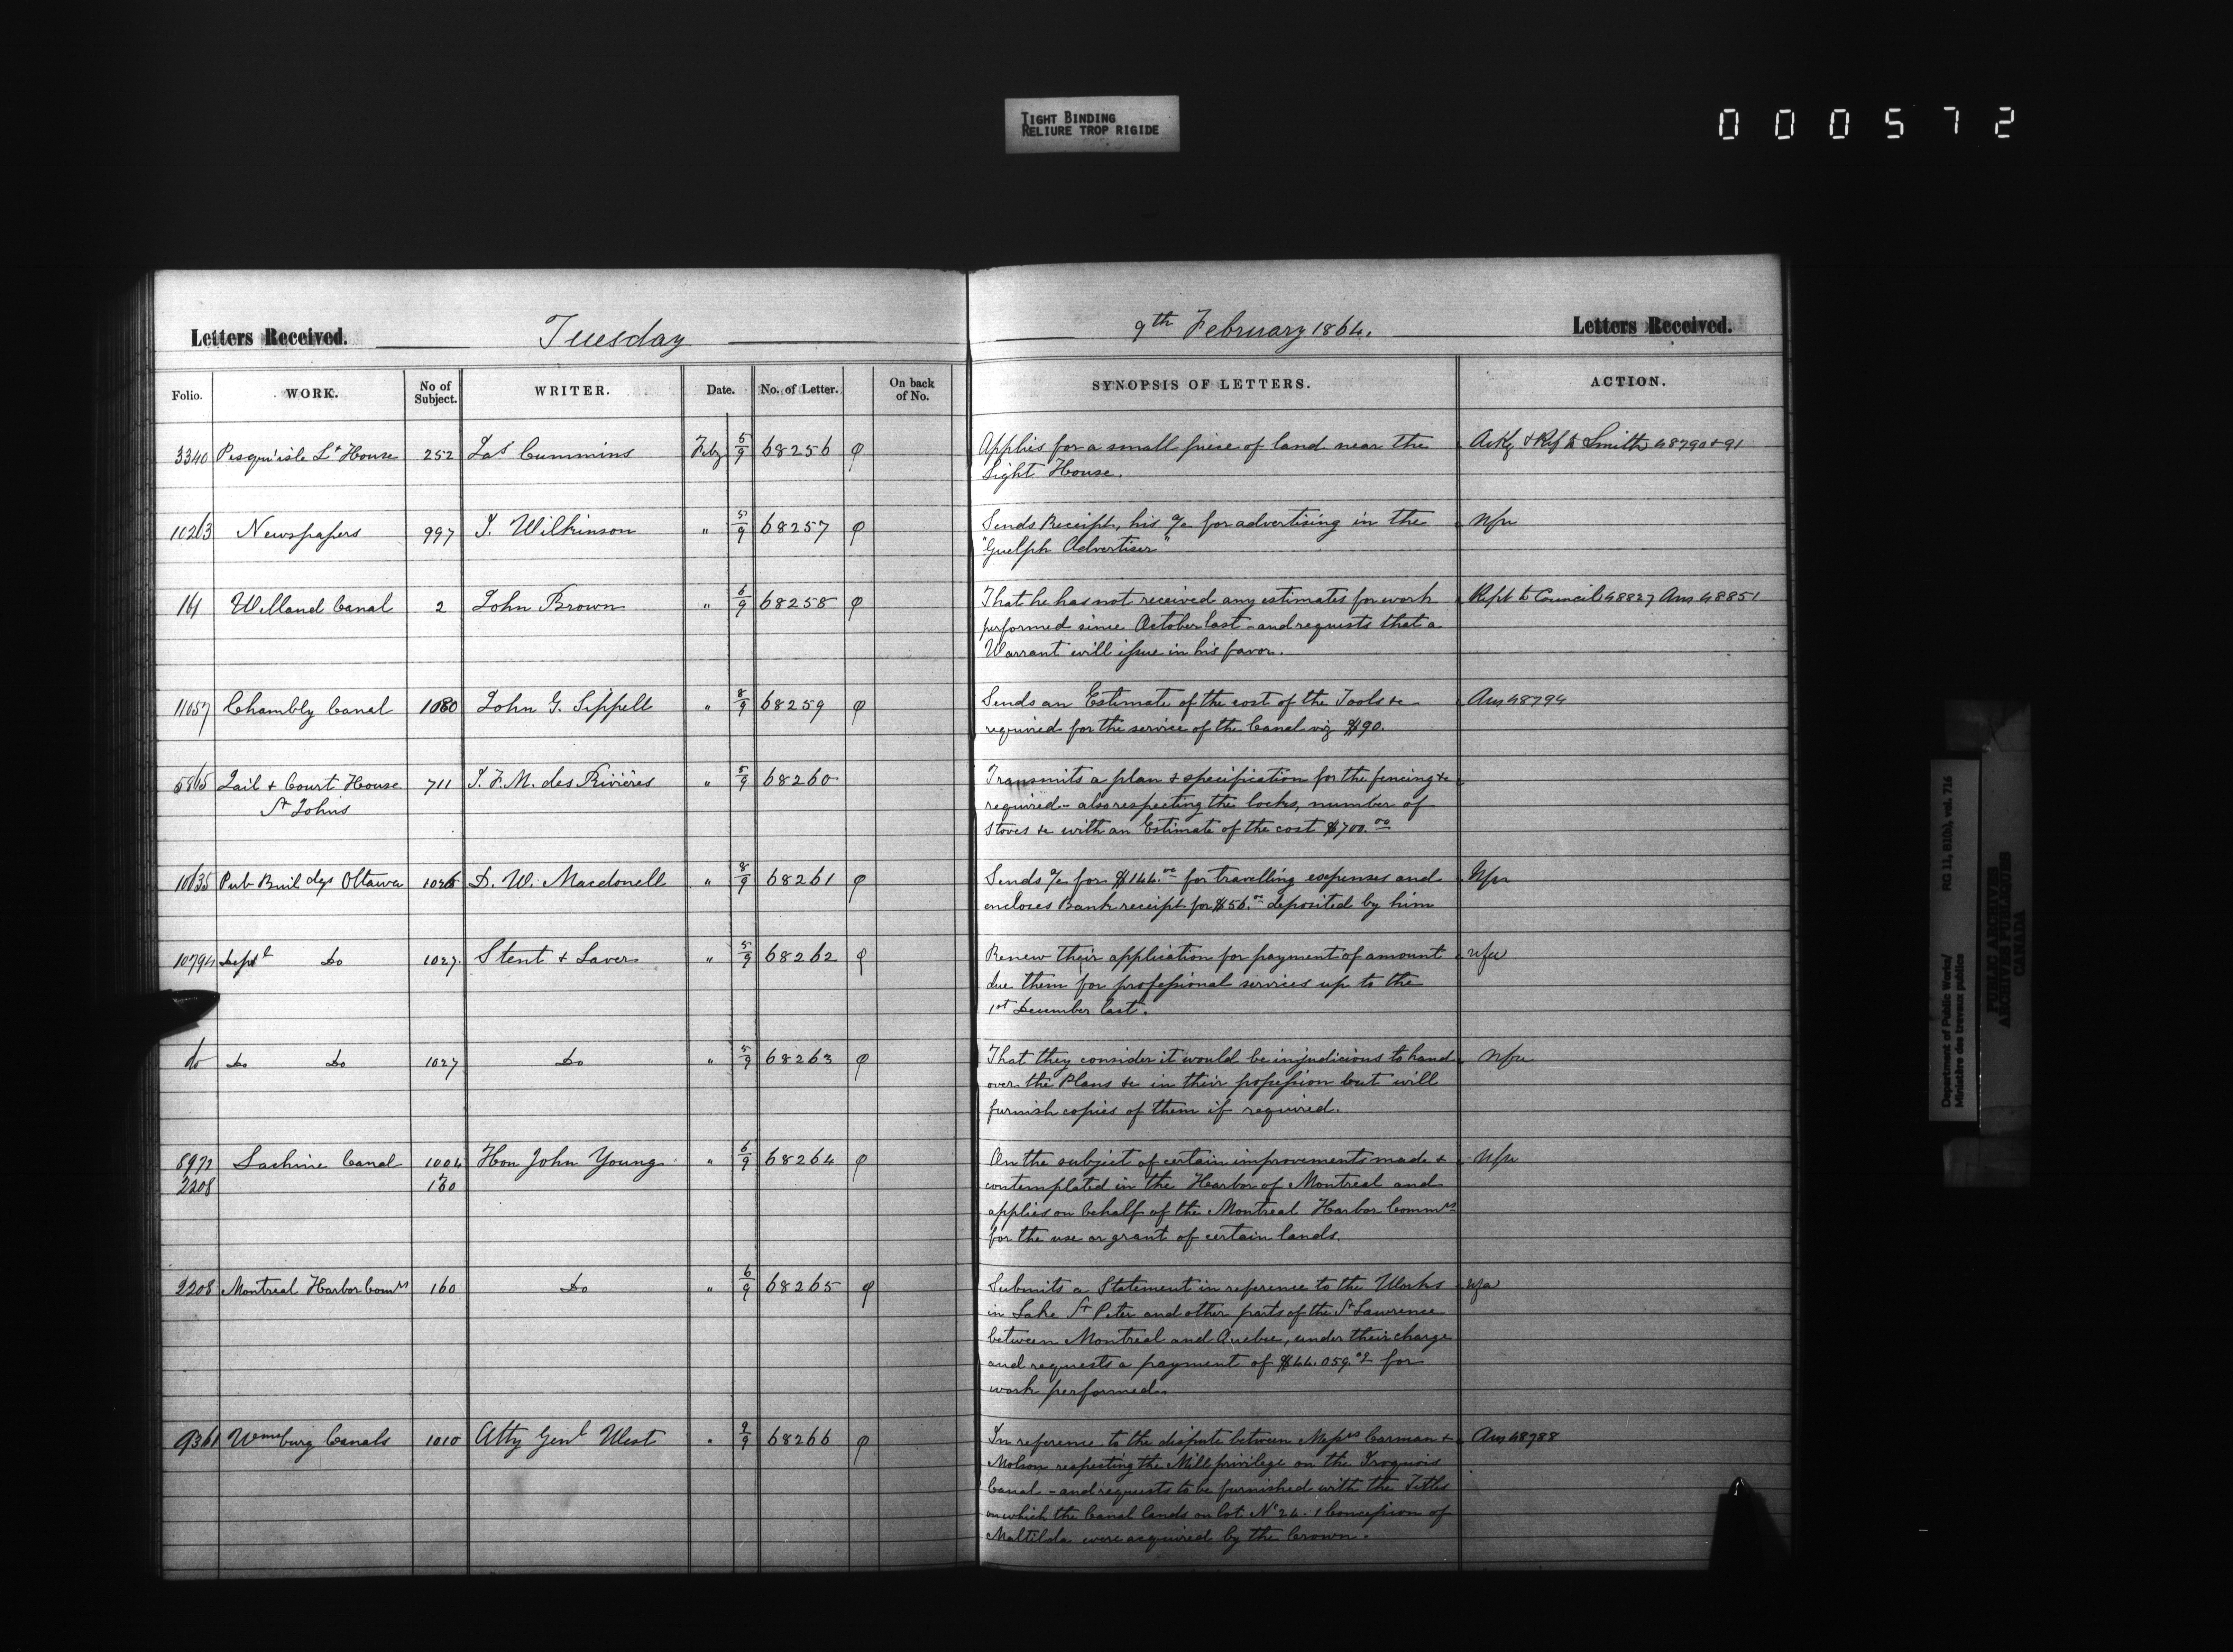 TIGHT BINDING
RELIURE TROP RIGIDE
000572
Letters Received. Tuesday 9th February 1864. Letters Received.
Folio. WORK. No of Subject. WRITER. Date. No. of Letter. On back of No. SYNOPSIS OF LETTERS. ACTION.
3340 Presqu'isle Lt House 252 Jas Cummins Feby 5/9 68256 φ Applies for a small piece of land near the Ackg & Ref to Smith 48790+91
Light House.
10263 Newspapers 997 J. Wilkinson " 5/9 68257 φ Sends Receipt, his a/c for advertising in the Nfu
"Guelph Advertiser"
161 Welland Canal 2 John Brown " 6/9 68258 φ That he has not received any estimates for work Rept to Council 48827 Ans 48851
performed since October last - and requests that a
Warrant will issue in his favor.
11057 Chambly Canal 1080 John G. Sippell " 8/9 68259 φ Sends an Estimate of the cost of the Tools &c Ans 48794
required for the service of the Canal viz $90.
5865 Jail & Court House 711 J. F. M. des Rivières " 5/9 68260 Transmits a plan & specification for the fencing &c
St Johns required - also respecting the locks, number of
Stoves &c with an Estimate of the cost $700.00
10635 Pub Buildgs Ottawa 1026 D. W. Macdonell " 8/9 68261 φ Sends a/c for $144.00 for travelling expenses and Nfu
encloses Bank receipt for $56.00 deposited by him
10794 Deptl Do 1027 Stent & Laver " 5/9 68262 φ Renew their application for payment of amount nfu
due them for professional services up to the
1st December last.
do Do Do 1027 Do " 5/9 68263 φ That they consider it would be injudicious to hand nfu
over the Plans &c in their possession but will
furnish copies of them if required.
8972 Lachine Canal 1004 Hon John Young " 6/9 68264 φ On the subject of certain improvements made & Nfu
2208 160 contemplated in the Harbor of Montreal and
applies on behalf of the Montreal Harbor Commrs
for the use or grant of certain lands.
2208 Montreal Harbor Comrs 160 Do " 6/9 68265 φ Submits a Statement in reference to the Works nfu
in Lake St Peter and other parts of the St Lawrence
between Montreal and Quebec, under their charge
and requests a payment of $44.059. for
work performed.
9361 Wmsburg Canals 1010 Atty Genl West " 9/9 68266 φ In reference to the dispute between Messrs Carman & Ans 48788
Molson respecting the Mill privilege on the Iroquois
Canal - and requests to be furnished with the Titles
on which the Canal lands on lot No 24. 1 Concession of
Maltilda were acquired by the Crown.
Department of Public Works/ RG 11, B1(b), vol. 716
Ministère des travaux publics
PUBLIC ARCHIVES
ARCHIVES PUBLIQUES
CANADA